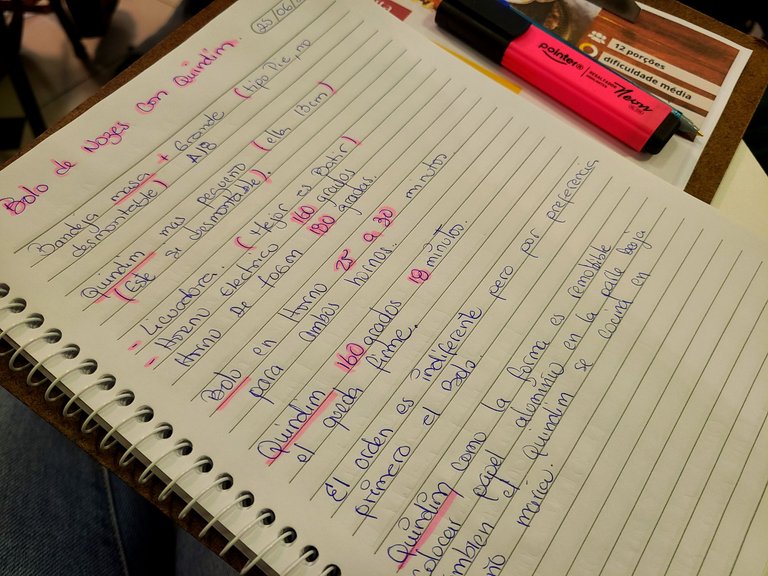 25/06/2
Bolo de Nozes Con Quindim.
Bandeja masa + Grande (tipo Pie, no
desmontable) A1B
Quindim mas pequeño (ella 13cm)
(Este si desmontable).
- Licuadora. (Mejor es Batir)
- Horno Electrico 160 grados
Horno De fogon 180 grados.
Bolo en Horno 25 a 30 minutos
para ambos hornos.
Quindim 160 grados 18 minutos.
el queda firme.
El orden es indiferente pero por preferencia
primero el Bolo.
Quindim como la forma es removible
colocar papel aluminio en la parte baja
tambien el Quindim se cocina en
maria.
pointer
RESALTADOR
Neon
12 porções
dificuldade média